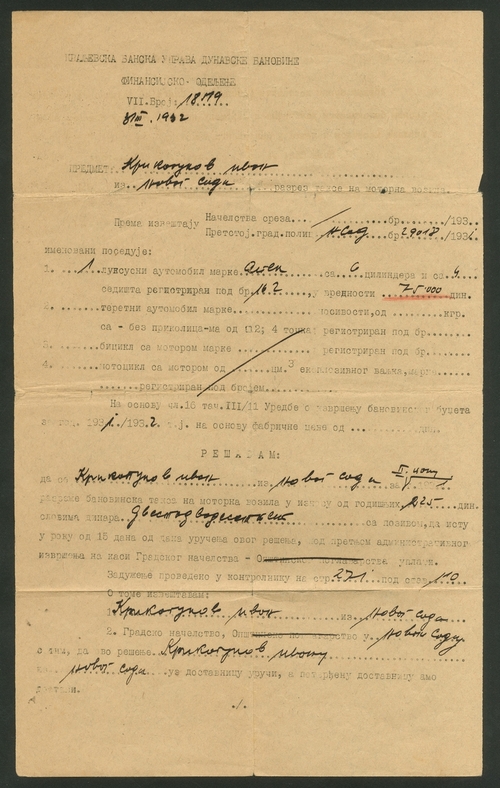 КРАЉЕВСКА БАНСКА УПРАВА ДУНАВСКЕ БАНОВИНЕ
ФИНАНСИЈСКО ОДЕЉЕЊЕ
VII. Број:
1932
ПРЕДМЕТ: Крикотунов Иван
из Новог Сада разрез таксе на моторна возила.
Према извештају Начелства среза бр. /193
Претстој.град.полиц Н Сад бр. 29018/193
именовани поседује:
1. 1 луксусни аутомобил марке са 6 цилиндера и са 4
седишта регистриран под бр. 162, у вредности 75.000 дин.
2. теретни аутомобил марке носивости,од кгр.
са - без приколица-ма од 1 2; 4 точка; регистриран под бр.
3. бицикл са мотором марке регистриран под бр.
4. мотоцикл са мотором од цм.3 експлозивног марке
регистриран под бројем
На основу чл.16 тач.III/11 Уредбе о бановинског буџета
за год. 1931/1932. г.ј. на основу фабричне цене од дин.
РЕШАВАМ:
да се Крикотунов Иван из Новог Сада за
бановинска такса на моторна возила у износу од годишњих 225 дин.
словима динара двестодвадесетипет са позивом, да исту
у року од 15 дана од дана уручења овог решења, под претњом административног
извршења на каси Градског начелства - Општинског поглаварства уплати.
Задужење проведено у контролнику на стр. 271 под став. 110
О томе извештавам:
1. Крикотунов Иван из Новог Сада
2. Градско начелство, Општинско поглаварство у Новом Саду
с тим, да ово решење Крикотунов Ивану
из Новог Сада уз доставницу уручи, а потврђену доставницу амо
достави.
./.